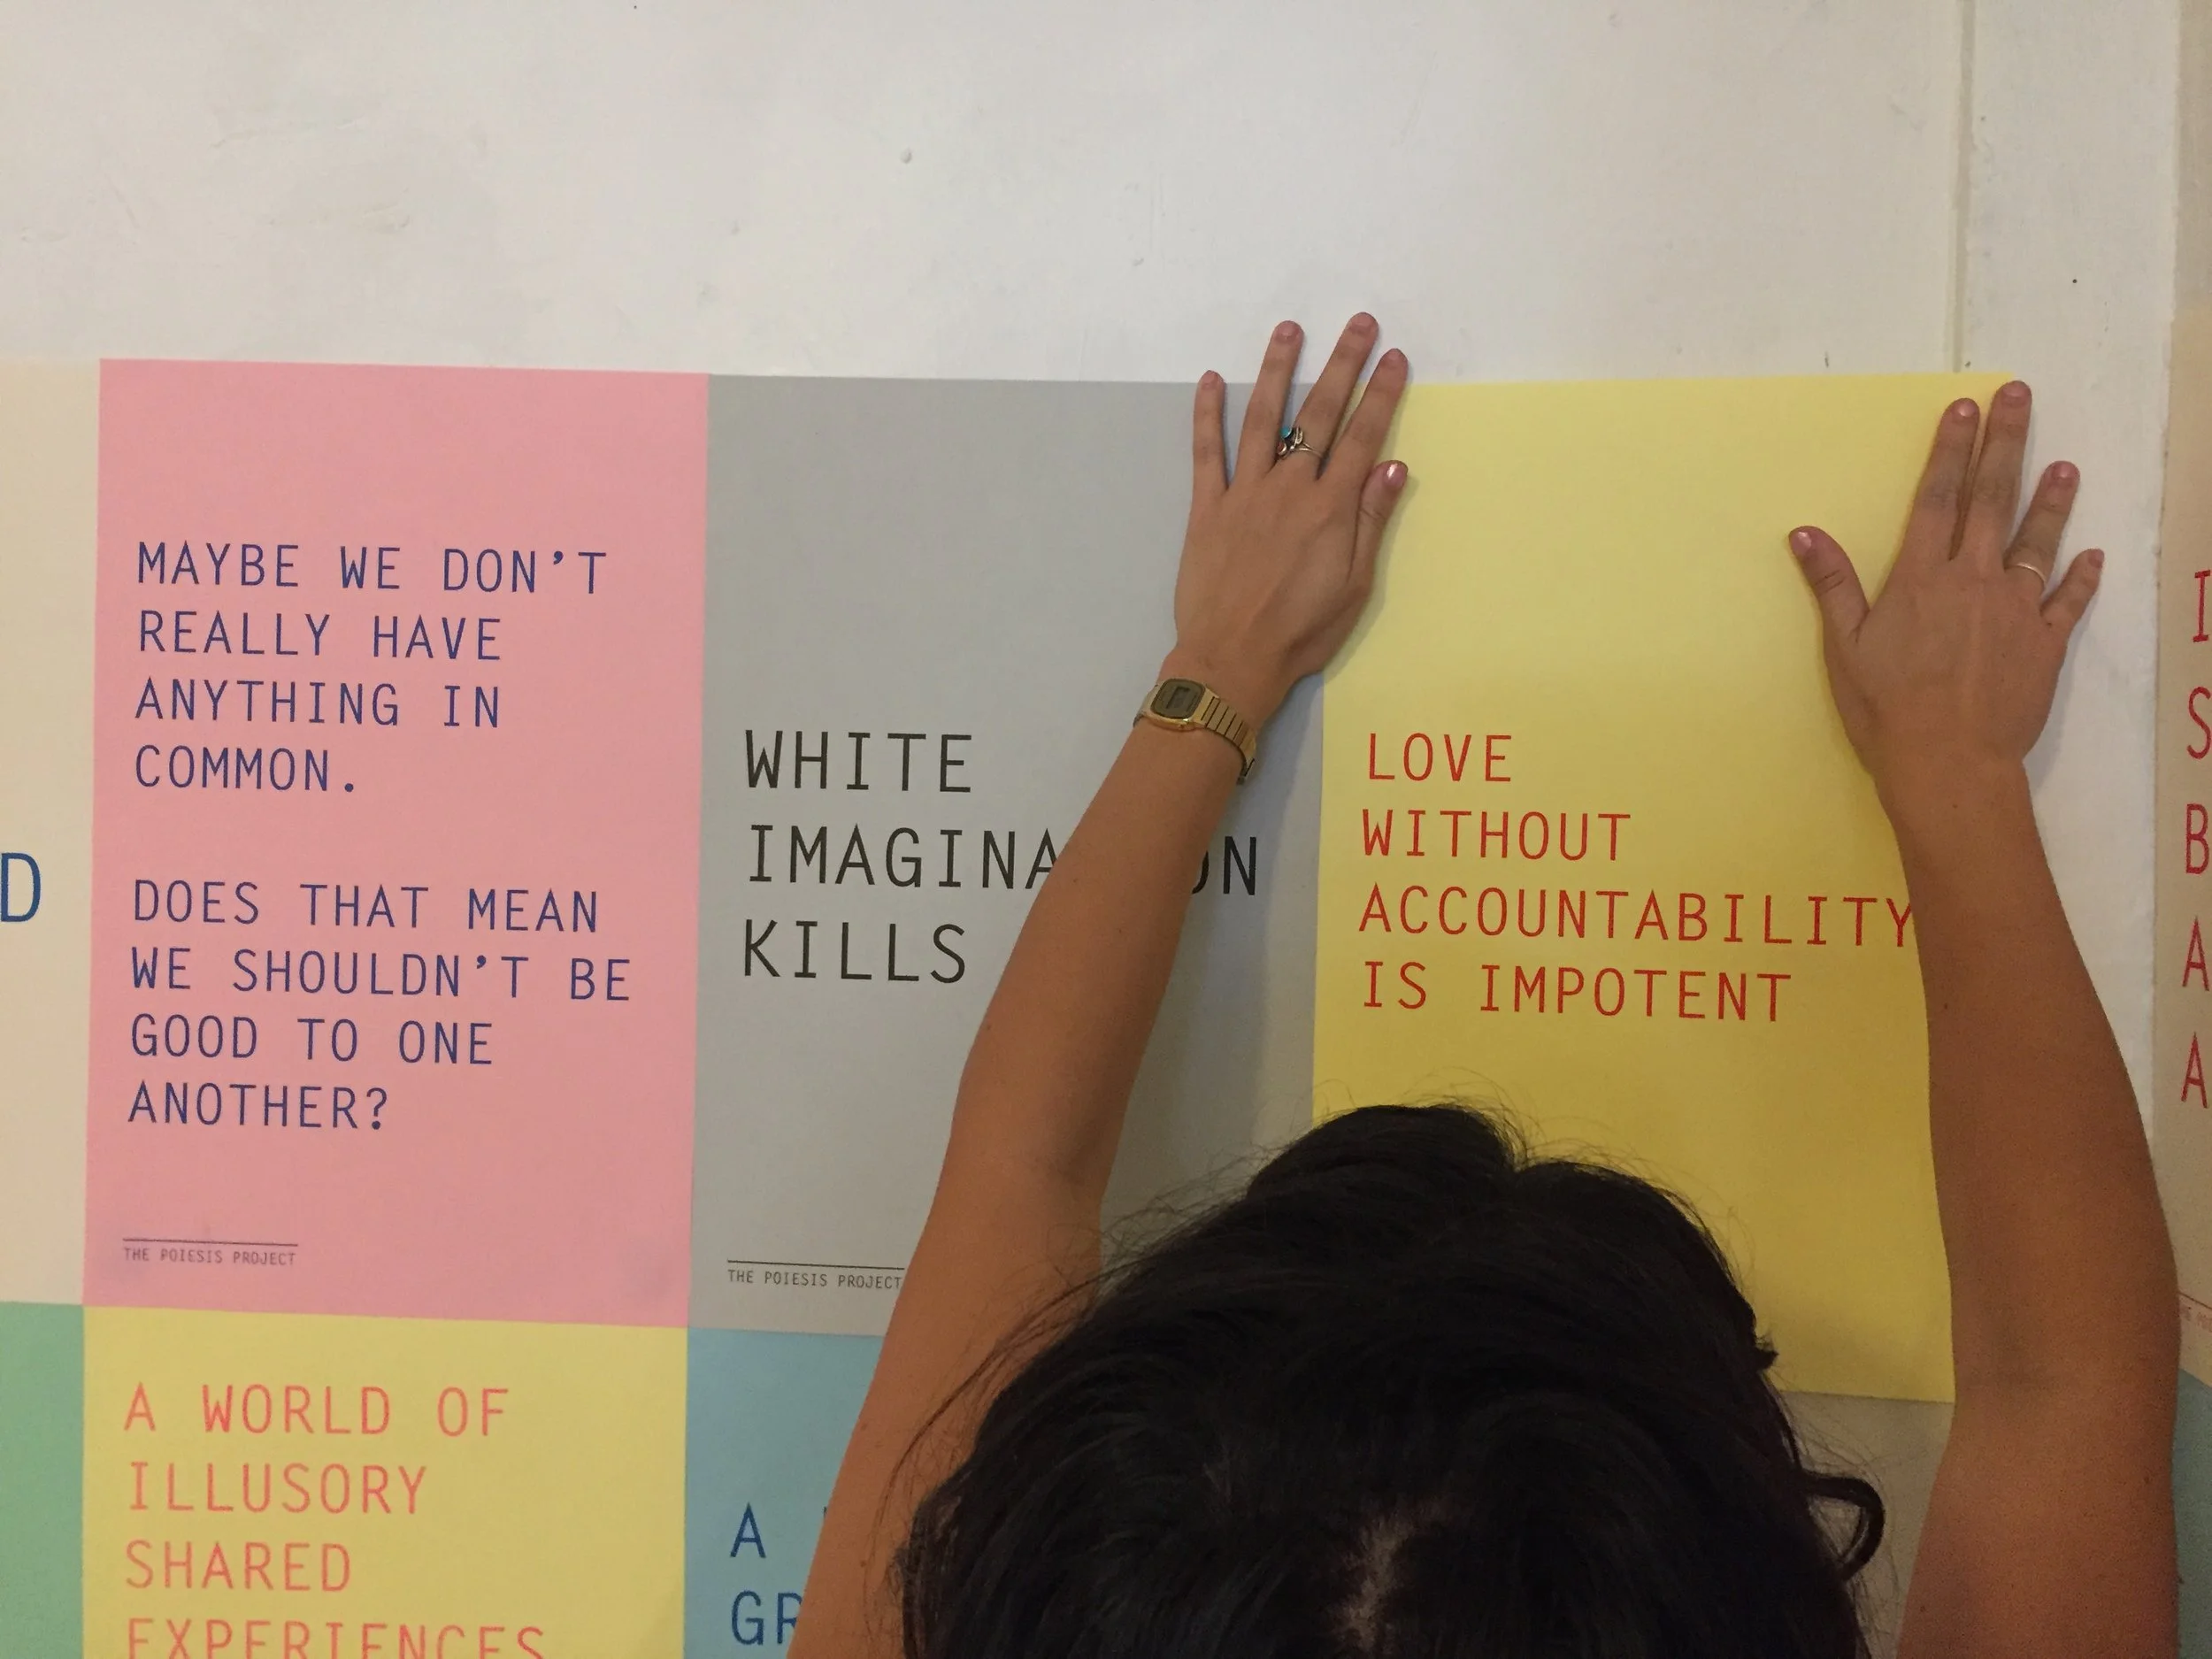 MAYBE WE DON'T
REALLY HAVE
ANYTHING IN
COMMON.
DOES THAT MEAN
WE SHOULDN'T BE
GOOD TO ONE
ANOTHER?
THE POIESIS PROJECT
WHITE
KILLS
THE POIESIS PROJECT
LOVE
WITHOUT
ACCOUNTABILITY
IS IMPOTENT
A WORLD OF
ILLUSORY
SHARED
EXPERIENCES
A